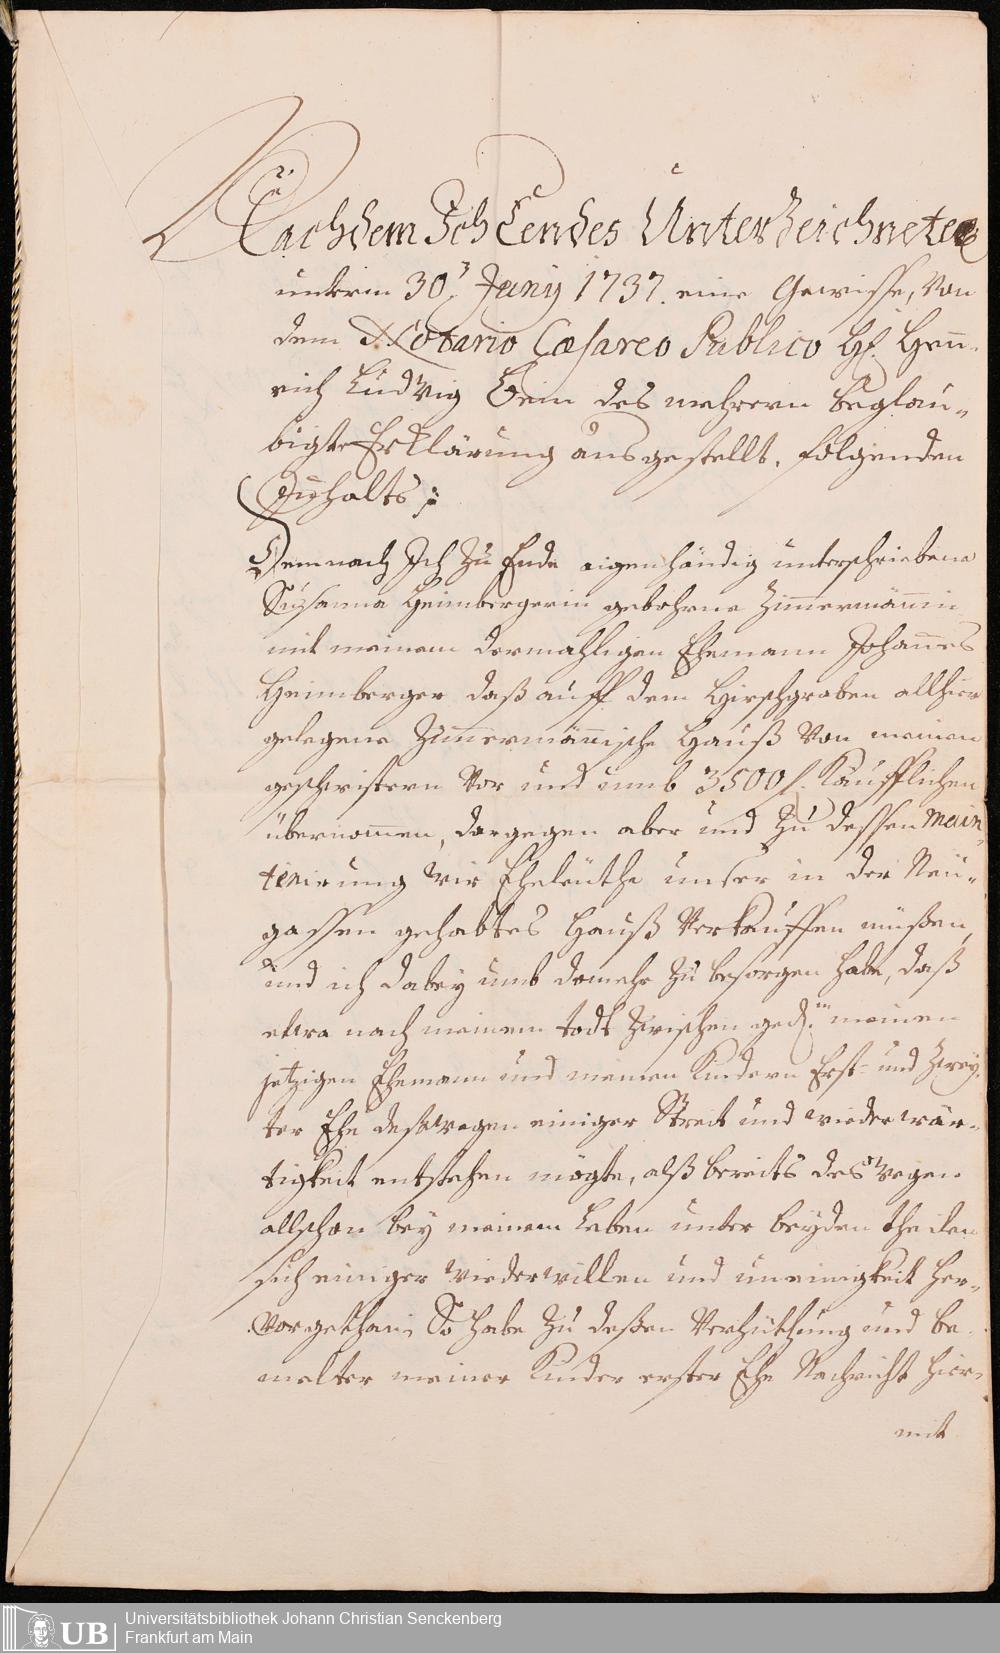 Nachdem Ich Endes Unterzeichnete
unterm 30. Juny 1737. eine Gewisse, von
dem Notario Cæsareo Publico H. Henn-
rich Ludwig Hein des mehrern beglau-
bigte Erklärung ausgestellt, folgenden
Inhalts:
Demnach Ich zu Ende eigenhändig unterschriebene
Susanna Heimbergerin gebohrne Zim̅ermän̅in
mit meinem dermahligen Ehemann Johan̅es
Heimberger daß auff dem Hirschgraben allhier
gelegene Zim̅ermän̅ische Hauß von meinen
geschwistern vor und umb 3500 f. Käufflichen
übernom̅en, dargegen aber und zu dessen main-
tenirung wir Eheleüthe unser in der Neu-
gassen gehabtes Hauß verkauffen müßen,
und ich dabey umb domehr zu besorgen habe, daß
etwa nach meinem todt zwischen ged.m meinen
jetzigen Ehemann und meinen Kindern Erst- und Zwey-
ter Ehe deßwegen einiger Streit und wiederwär-
tigkeit entstehen mögte, alß bereits deswegen
allschon bey meinem Leben unter beyden theilen
sich einiger wiederwillen und uneinigkeit her-
vorgethan; So habe zu deßen Verhüthung und be-
melter meiner Kinder erster Ehe Nachricht hier-
mit
Universitätsbibliothek Johann Christian Senckenberg
Frankfurt am Main
UB